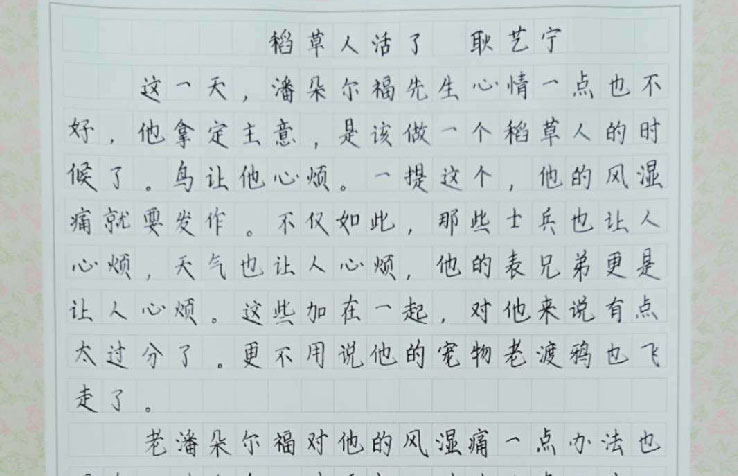 稻草人活了 耿艺宁
这一天，潘朵尔福先生心情一点也不
好，他拿定主意，是该做一个稻草人的时
候了。鸟让他心烦。一提这个，他的风湿
痛就要发作。不仅如此，那些士兵也让人
心烦，天气也让人心烦，他的表兄弟更是
让人心烦。这些加在一起，对他来说有点
太过分了。更不用说他的宠物老渡鸦也飞
走了。
老潘朵尔福对他的风湿痛一点办法也